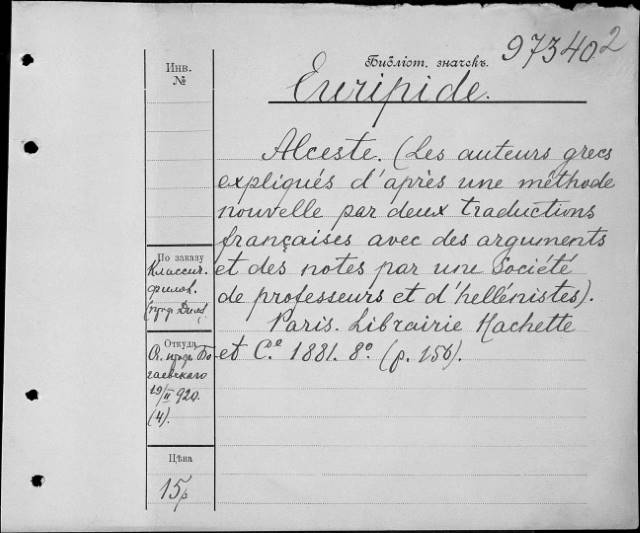 Библіот. значекъ.
973402
Инв.
№
Euripide.
Alceste. (Les auteurs grecs
expliqués d'après une méthode
nouvelle par deux traductions
françaises avec des arguments
et des notes par une Société
de professeurs et d'hellénistes).
Paris. Librairie Hachette
et C.e 1881. 8º. (p. 156).
По заказу
Классич.
филол.
Откуда
От проф. Бо
гаевскаго
19/II 920.
(4).
Цѣна
15р